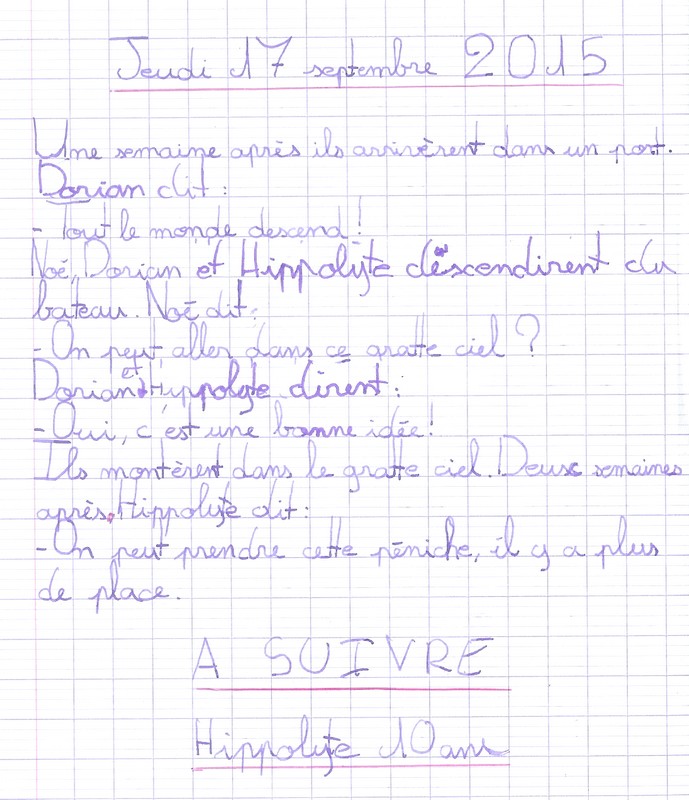 Jeudi 17 septembre 2015
Une semaine après ils arrivèrent dans un port.
Dorian dit :
- Tout le monde descend !
Noé, Dorian et Hippolyte descendirent du
bateau. Noé dit :
- On peut aller dans ce gratte ciel ?
Dorian et Hippolyte dirent :
- Oui, c'est une bonne idée !
Ils montèrent dans le gratte ciel. Deux semaines
après, Hippolyte dit :
- On peut prendre cette péniche, il y a plus
de place.
A SUIVRE
Hippolyte 10 ans